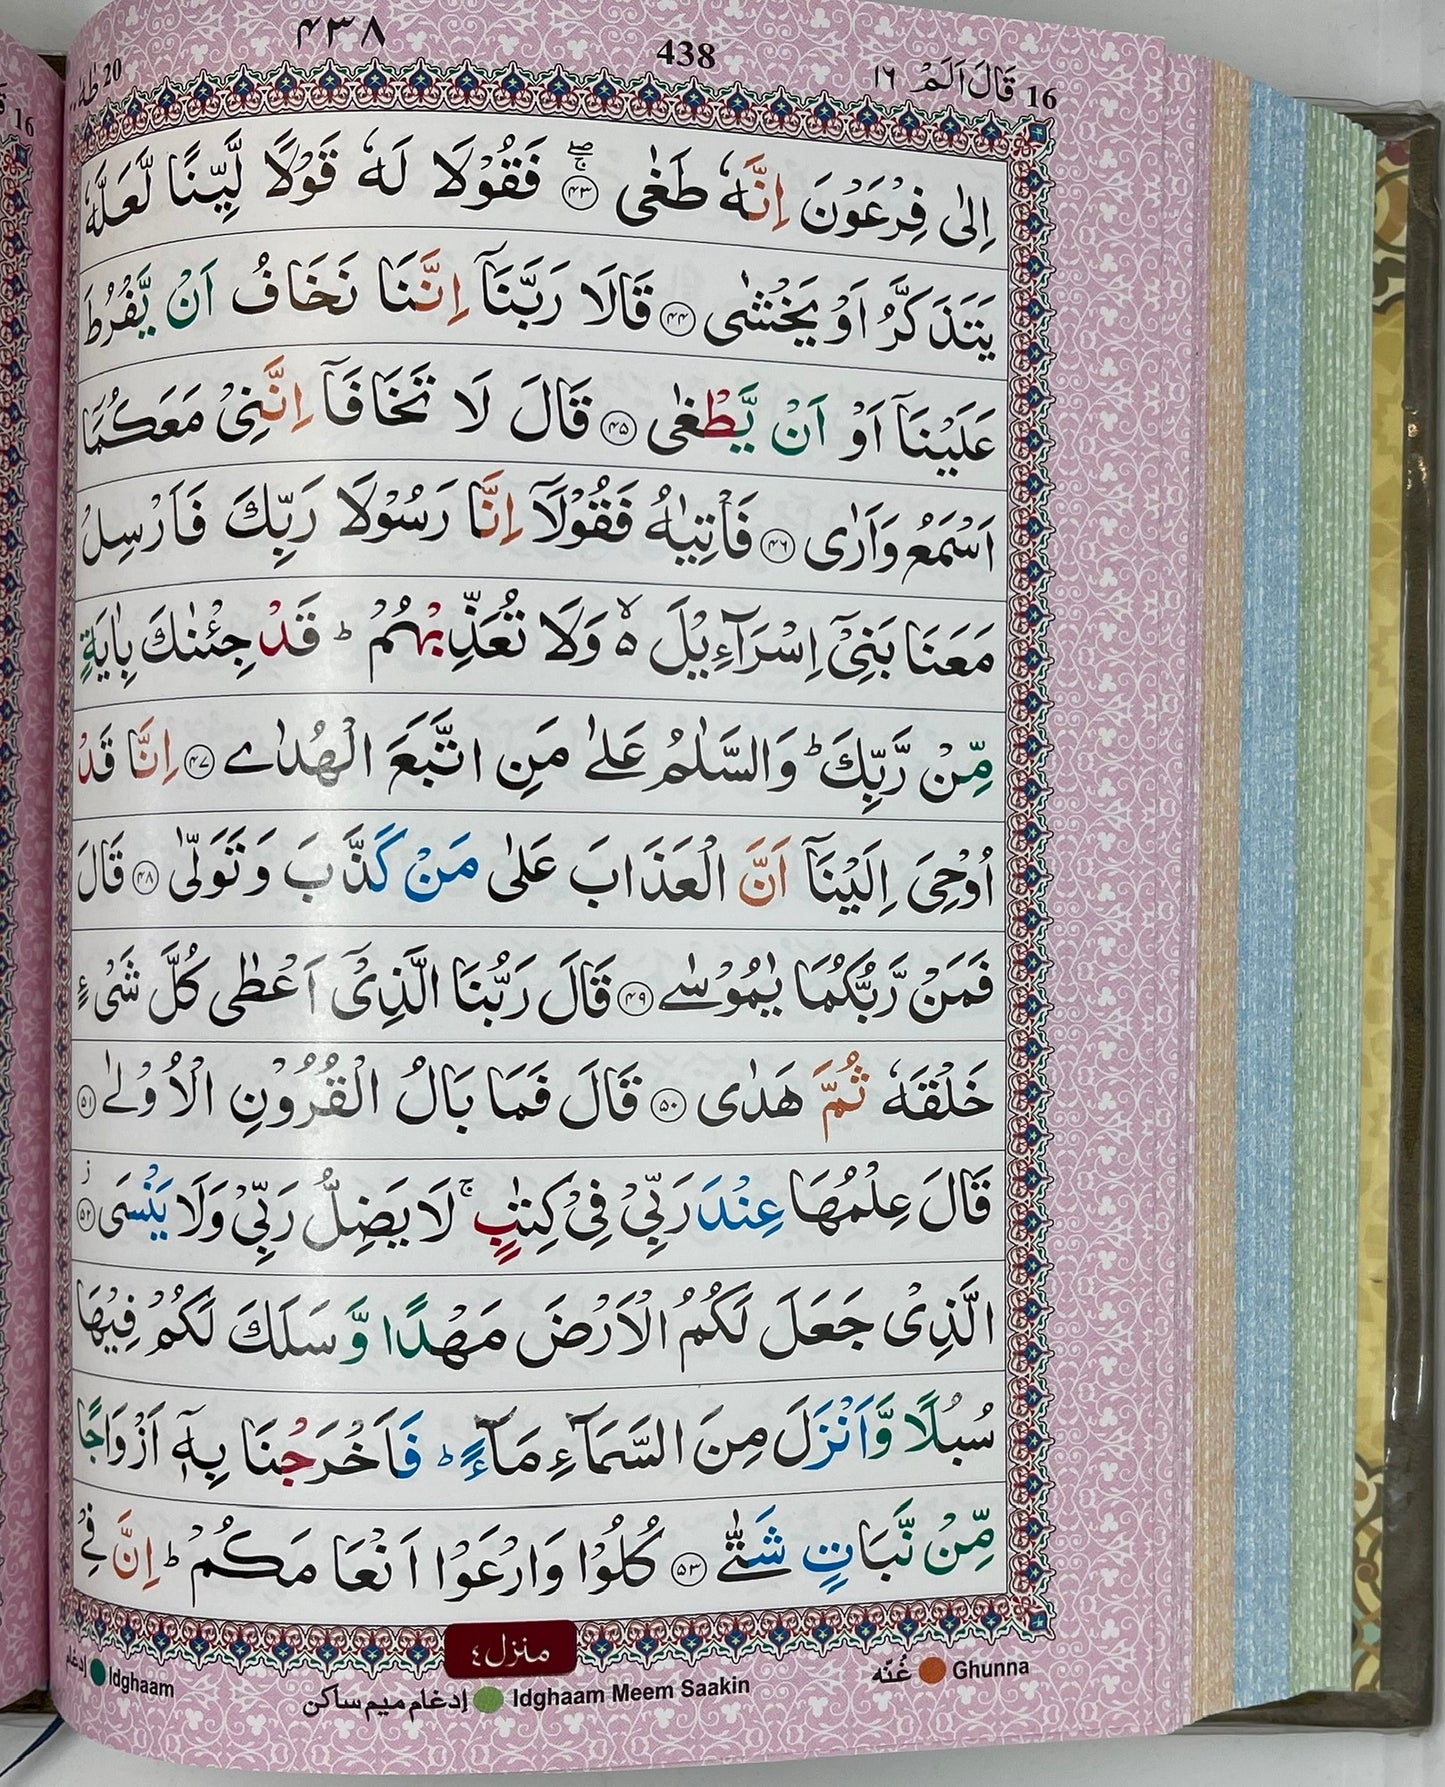 ۴۳۸
438
16 قَالَ اَلَمْ ١٦
20 طٰهٰ
اِلٰى فِرْعَوْنَ اِنَّهٗ طَغٰى ۚۖ ﴿۴۳﴾ فَقُوْلَا لَهٗ قَوْلًا لَّيِّنًا لَّعَلَّهٗ
يَتَذَكَّرُ اَوْ يَخْشٰى ﴿۴۴﴾ قَالَا رَبَّنَاۤ اِنَّنَا نَخَافُ اَنْ يَّفْرُطَ
عَلَيْنَاۤ اَوْ اَنْ يَّطْغٰى ﴿۴۵﴾ قَالَ لَا تَخَافَاۤ اِنَّنِىْ مَعَكُمَاۤ
اَسْمَعُ وَاَرٰى ﴿۴۶﴾ فَاْتِيٰهُ فَقُوْلَاۤ اِنَّا رَسُوْلَا رَبِّكَ فَاَرْسِلْ
مَعَنَا بَنِىْۤ اِسْرَآءِيْلَ ۙ۬ وَلَا تُعَذِّبْهُمْ ؕ قَدْ جِئْنٰكَ بِاٰيَةٍ
مِّنْ رَّبِّكَ ؕ وَالسَّلٰمُ عَلٰى مَنِ اتَّبَعَ الْهُدٰى ﴿۴۷﴾ اِنَّا قَدْ
اُوْحِىَ اِلَيْنَاۤ اَنَّ الْعَذَابَ عَلٰى مَنْ كَذَّبَ وَتَوَلّٰى ﴿۴۸﴾ قَالَ
فَمَنْ رَّبُّكُمَا يٰمُوْسٰى ﴿۴۹﴾ قَالَ رَبُّنَا الَّذِىْۤ اَعْطٰى كُلَّ شَىْءٍ
خَلْقَهٗ ثُمَّ هَدٰى ﴿۵۰﴾ قَالَ فَمَا بَالُ الْقُرُوْنِ الْاُوْلٰى ﴿۵۱﴾
قَالَ عِلْمُهَا عِنْدَ رَبِّىْ فِىْ كِتٰبٍ ۚ لَا يَضِلُّ رَبِّىْ وَلَا يَنْسَى ؗ ﴿۵۲﴾
الَّذِىْ جَعَلَ لَكُمُ الْاَرْضَ مَهْدًا وَّسَلَكَ لَكُمْ فِيْهَا
سُبُلًا وَّاَنْزَلَ مِنَ السَّمَآءِ مَآءً ؕ فَاَخْرَجْنَا بِهٖۤ اَزْوَاجًا
مِّنْ نَّبَاتٍ شَتّٰى ﴿۵۳﴾ كُلُوْا وَارْعَوْا اَنْعَامَكُمْ ؕ اِنَّ فِىْ
منزل٤
غُنّه Ghunna
إدغام ميم ساكن Idghaam Meem Saakin
إدغام Idghaam
16